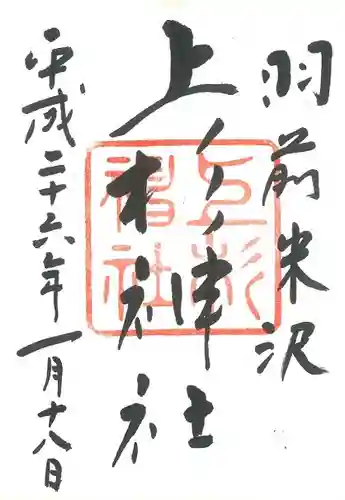 羽前米沢
上杉神社
上杉
神社
平成二十六年一月十八日